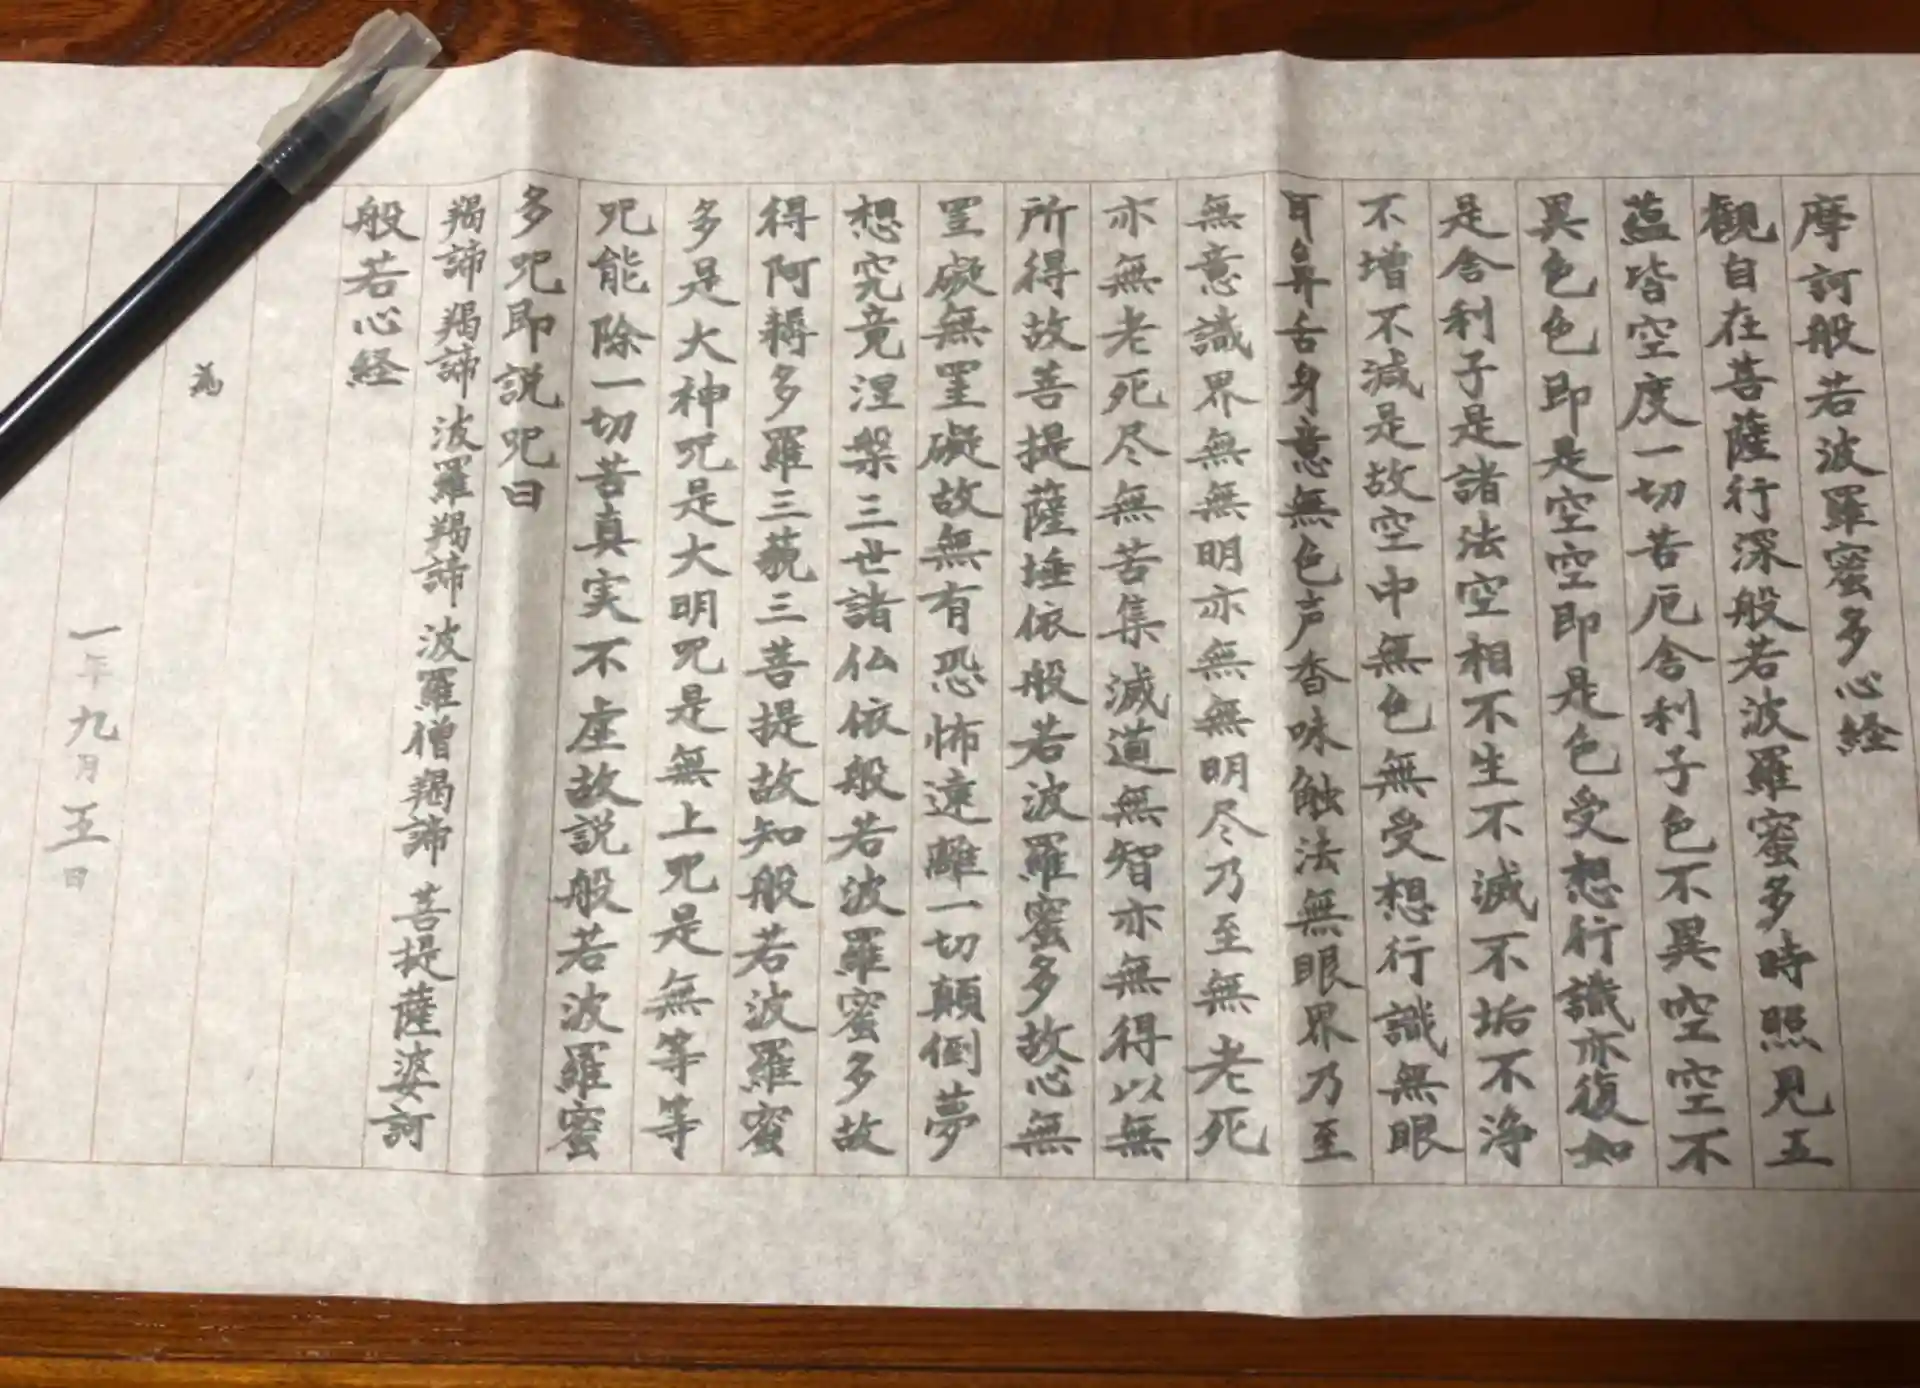 摩訶般若波羅蜜多心経
観自在菩薩行深般若波羅蜜多時照見五
蘊皆空度一切苦厄舎利子色不異空空不
異色色即是空空即是色受想行識亦復如
是舎利子是諸法空相不生不滅不垢不浄
不増不減是故空中無色無受想行識無眼
耳鼻舌身意無色声香味触法無眼界乃至
無意識界無無明亦無無明尽乃至無老死
亦無老死尽無苦集滅道無智亦無得以無
所得故菩提薩埵依般若波羅蜜多故心無
罣礙無罣礙故無有恐怖遠離一切顛倒夢
想究竟涅槃三世諸仏依般若波羅蜜多故
得阿耨多羅三藐三菩提故知般若波羅蜜
多是大神呪是大明呪是無上呪是無等等
呪能除一切苦真実不虚故説般若波羅蜜
多呪即説呪曰
羯諦羯諦波羅羯諦波羅僧羯諦菩提薩婆訶
般若心経
為
一年九月五日